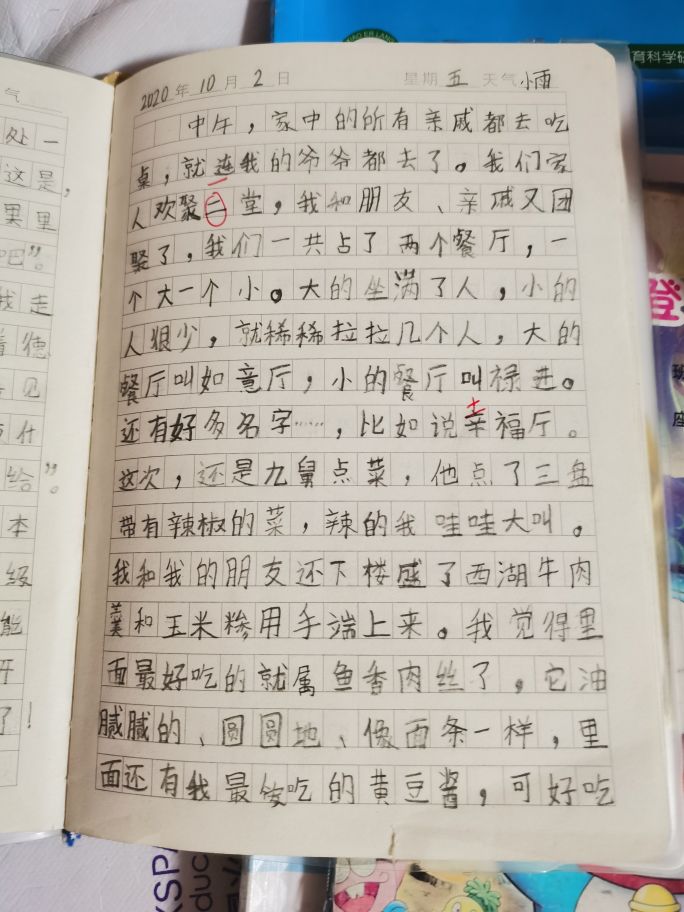 气
处一
这是，
果里
吧”。
我走
着德
见
什
给”。
本
级
能
开
了！
2020年10月2日 星期五 天气小雨
中午，家中的所有亲戚都去吃
桌，就连我的爷爷都去了。我们家
人欢聚二堂，我和朋友、亲戚又团
聚了，我们一共占了两个餐厅，一
个大一个小。大的坐满了人，小的
人很少，就稀稀拉拉几个人，大的
餐厅叫如意厅，小的餐厅叫禄进。
还有好多名字……，比如说幸福厅。
这次，还是九舅点菜，他点了三盘
带有辣椒的菜，辣的我哇哇大叫。
我和我的朋友还下楼盛了西湖牛肉
羹和玉米糁用手端上来。我觉得里
面最好吃的就属鱼香肉丝了，它油
腻腻的、圆圆地、像面条一样，里
面还有我最爱吃的黄豆酱，可好吃
育科学研
登
班
座
XSPA
duc